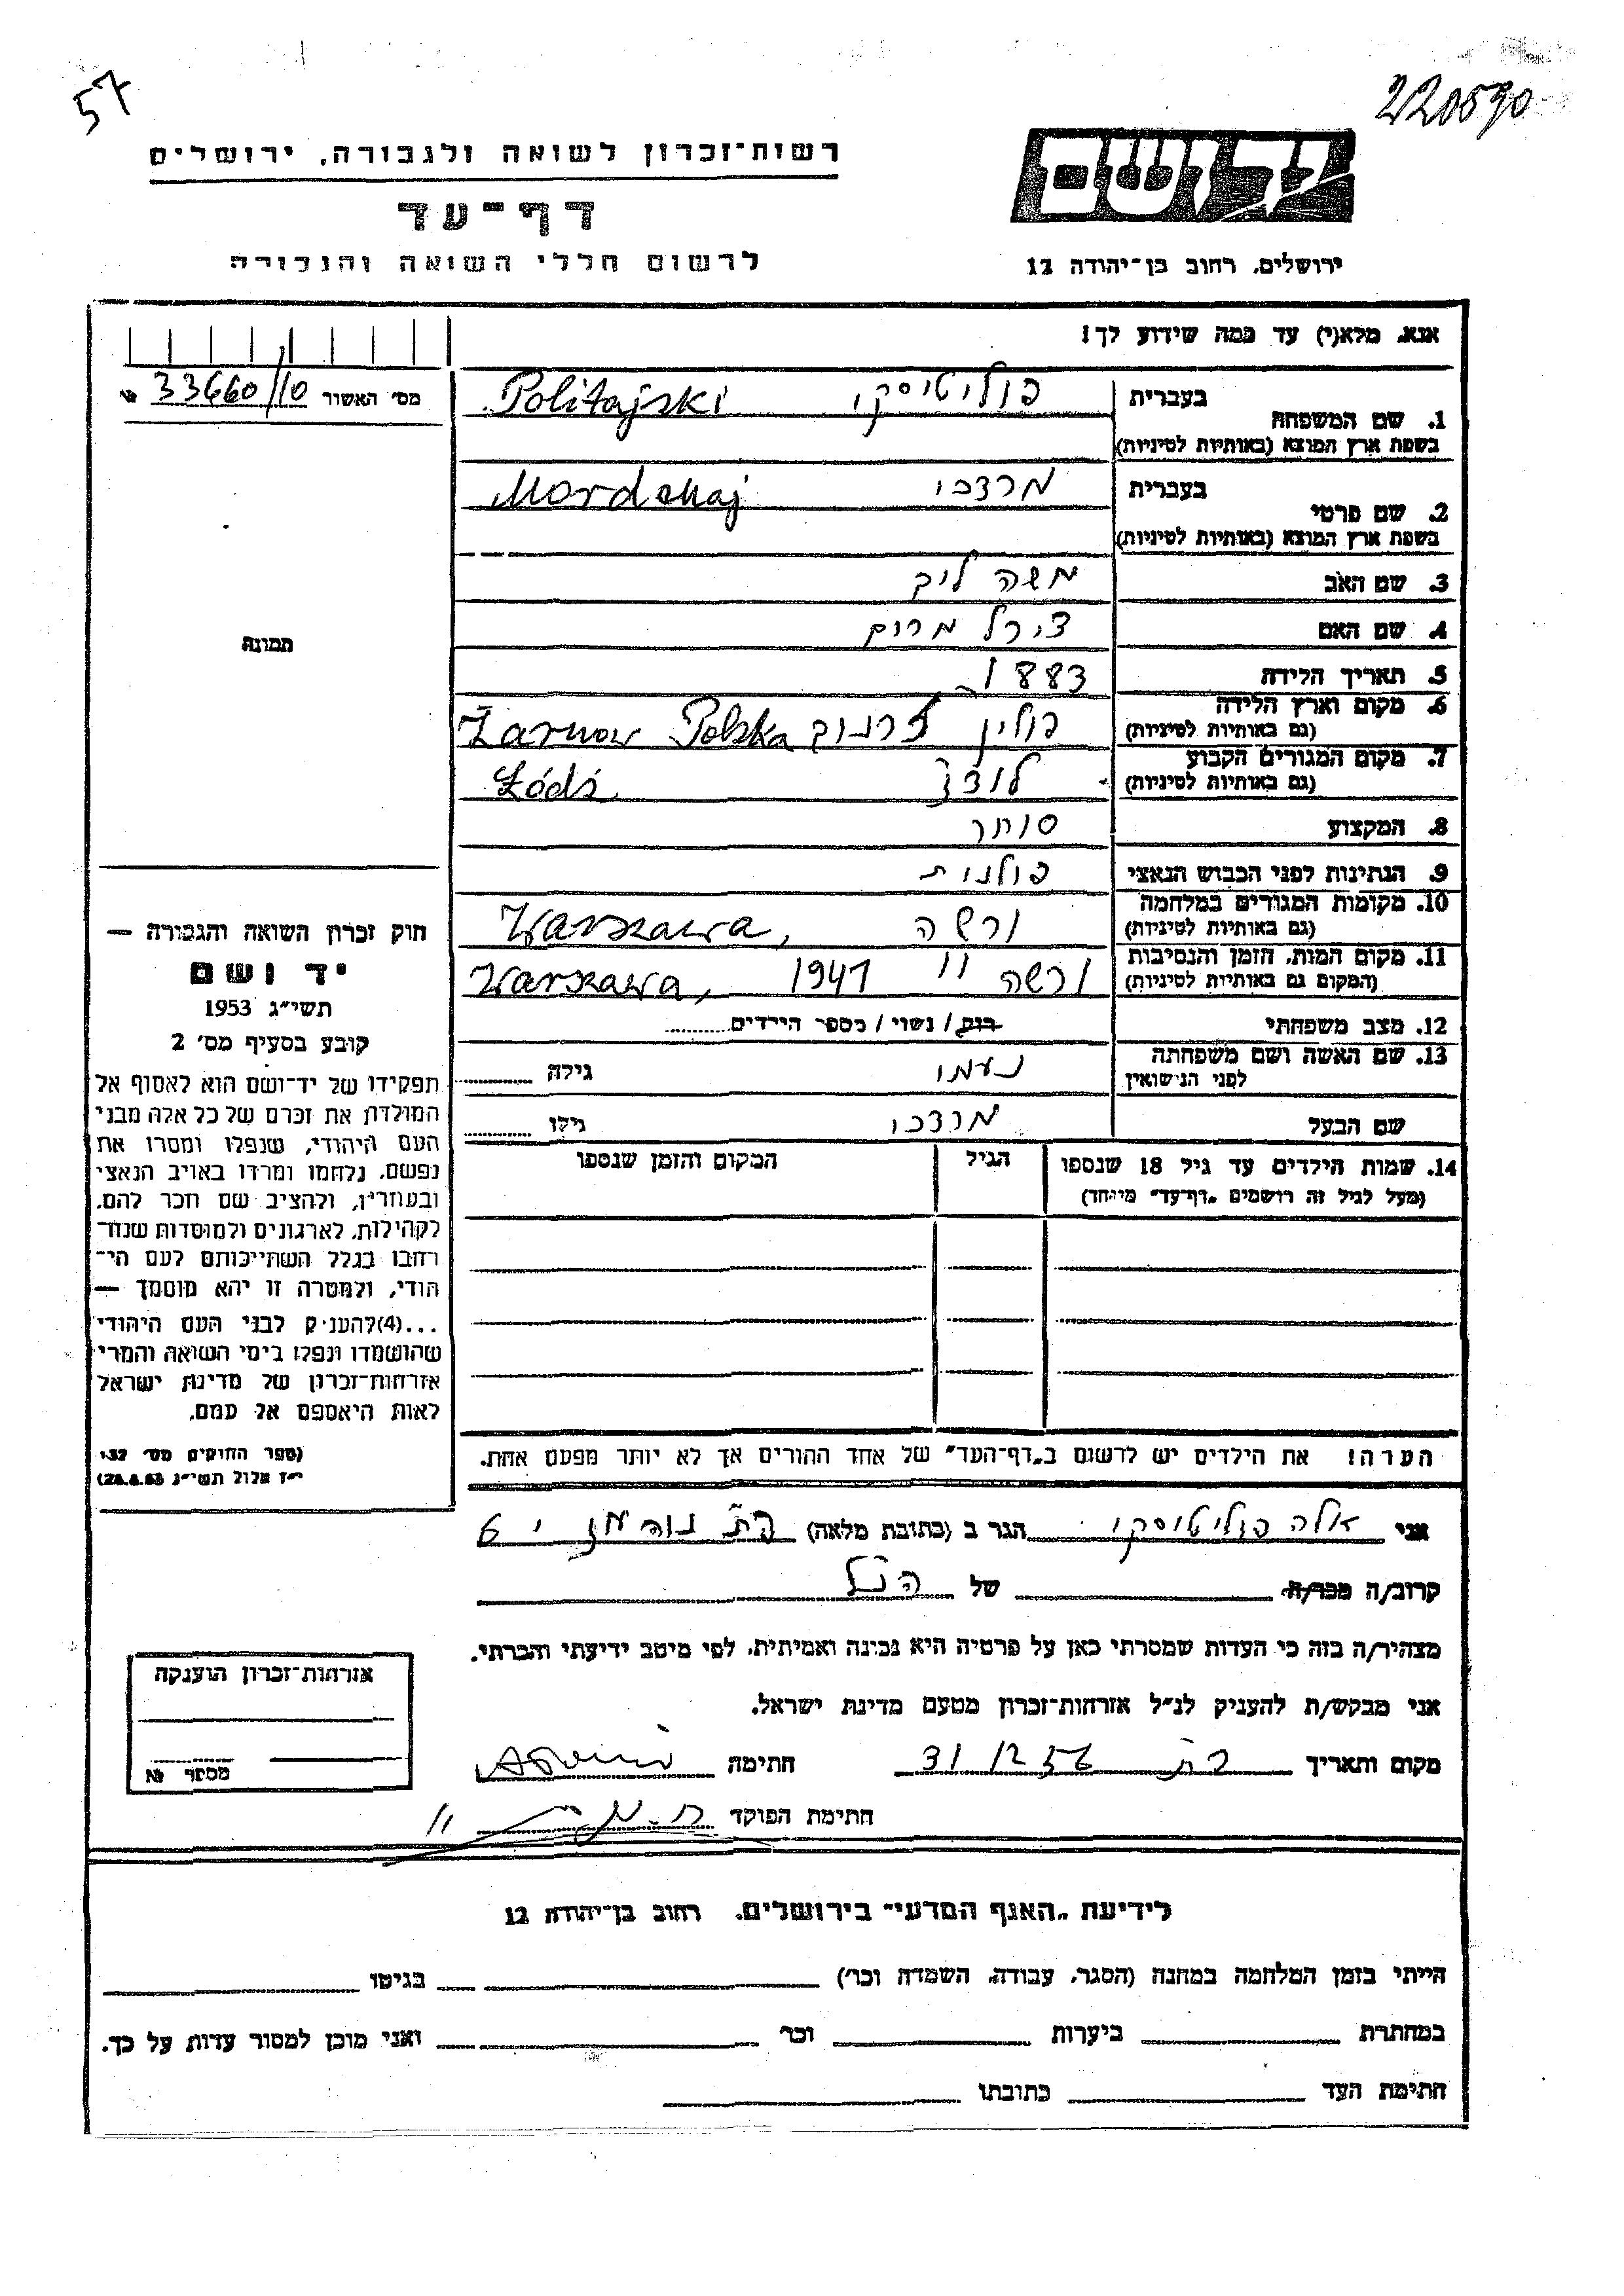 57
220590
רשות־זכרון לשואה ולגבורה, ירושלים
דף־עד
לרשום חללי השואה והגבורה
יד ושם
ירושלים, רחוב בן־יהודה 12
אנא, מלא(י) עד כמה שידוע לך!
מס׳ האשור № 33660/10
בעברית פוליטיסקי Politajski
1. שם המשפחה
בשפת ארץ המוצא (באותיות לטיניות)
בעברית מרדכי Mordchaj
2. שם פרטי
בשפת ארץ המוצא (באותיות לטיניות)
3. שם האב משה ליב
4. שם האם צירל מרים
תמונה
5. תאריך הלידה 1883
6. מקום וארץ הלידה פולין ז׳רנוב Żarnow Polska
(גם באותיות לטיניות)
7. מקום המגורים הקבוע לודז׳ Łódź
(גם באותיות לטיניות)
8. המקצוע סוחר
9. הנתינות לפני הכבוש הנאצי פולנית
10. מקומות המגורים במלחמה ורשה Warszawa,
(גם באותיות לטיניות)
11. מקום המות, הזמן והנסיבות ורשה 1941 Warszawa,
(המקום גם באותיות לטיניות)
12. מצב משפחתי רווק / נשוי / מספר הילדים
13. שם האשה ושם משפחתה נעמי גילה
לפני הנישואין
שם הבעל מרדכי גילו
14. שמות הילדים עד גיל 18 שנספו הגיל המקום והזמן שנספו
(מעל לגיל זה רושמים „דף־עד״ מיוחד)
חוק זכרון השואה והגבורה —
יד ושם
תשי״ג 1953
קובע בסעיף מס׳ 2
תפקידו של יד־ושם הוא לאסוף אל
המולדת את זכרם של כל אלה מבני
העם היהודי, שנפלו ומסרו את
נפשם, נלחמו ומרדו באויב הנאצי
ובעוזריו, ולהציב שם וזכר להם,
לקהילות, לארגונים ולמוסדות שנח־
רבו בגלל השתייכותם לעם הי־
הודי, ולמטרה זו יהא מוסמך —
...(4)להעניק לבני העם היהודי
שהושמדו ונפלו בימי השואה והמרי
אזרחות־זכרון של מדינת ישראל
לאות היאספם אל עמם.
(ספר החוקים מס׳ 132,
י״ז אלול תשי״ג 28.8.53)
הערה! את הילדים יש לרשום ב„דף־העד״ של אחד ההורים אך לא יותר מפעם אחת.
אני אלה פוליטיסקי הגר ב (כתובת מלאה)
קרוב/ה מכר/ה של הנ״ל
מצהיר/ה בזה כי העדות שמסרתי כאן על פרטיה היא נכונה ואמיתית, לפי מיטב ידיעתי והכרתי.
אני מבקש/ת להעניק לנ״ל אזרחות־זכרון מטעם מדינת ישראל.
מקום ותאריך 31/12 56 חתימה
חתימת הפוקד
אזרחות־זכרון הוענקה
מספר №
לידיעת „האגף המדעי״ בירושלים, רחוב בן־יהודה 12
הייתי בזמן המלחמה במחנה (הסגר, עבודה, השמדה וכו׳) בגיטו
במחתרת ביערות וכו׳ ואני מוכן למסור עדות על כך.
חתימת העד כתובתו